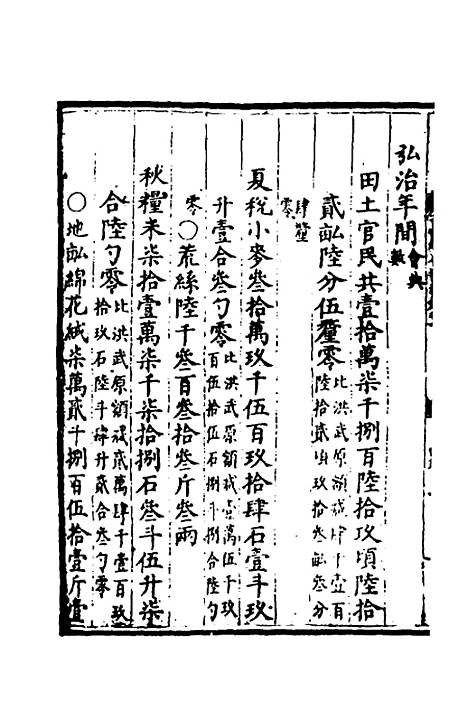 弘治年間會典數
田土官民共壹拾萬柒千捌百陸拾玖頃陸拾
貳畝陸分伍釐零比洪武原額減肆千壹百陸拾貳頃玖拾叁畝叁分
肆釐零
夏稅小麥叁拾萬玖千伍百玖拾肆石壹斗玖
升壹合叁勺零比洪武原額減壹萬伍千玖百伍拾伍石捌斗捌合陸勺
零○荒絲陸千叁百叁拾叁斤叁兩
秋糧米柒拾壹萬柒千柒拾捌石叁斗伍升柒
合陸勺零比洪武原額減貳萬肆千壹百玖拾玖石陸斗肆升貳合叁勺零
○地畝綿花絨柒萬貳千捌百伍拾壹斤壹